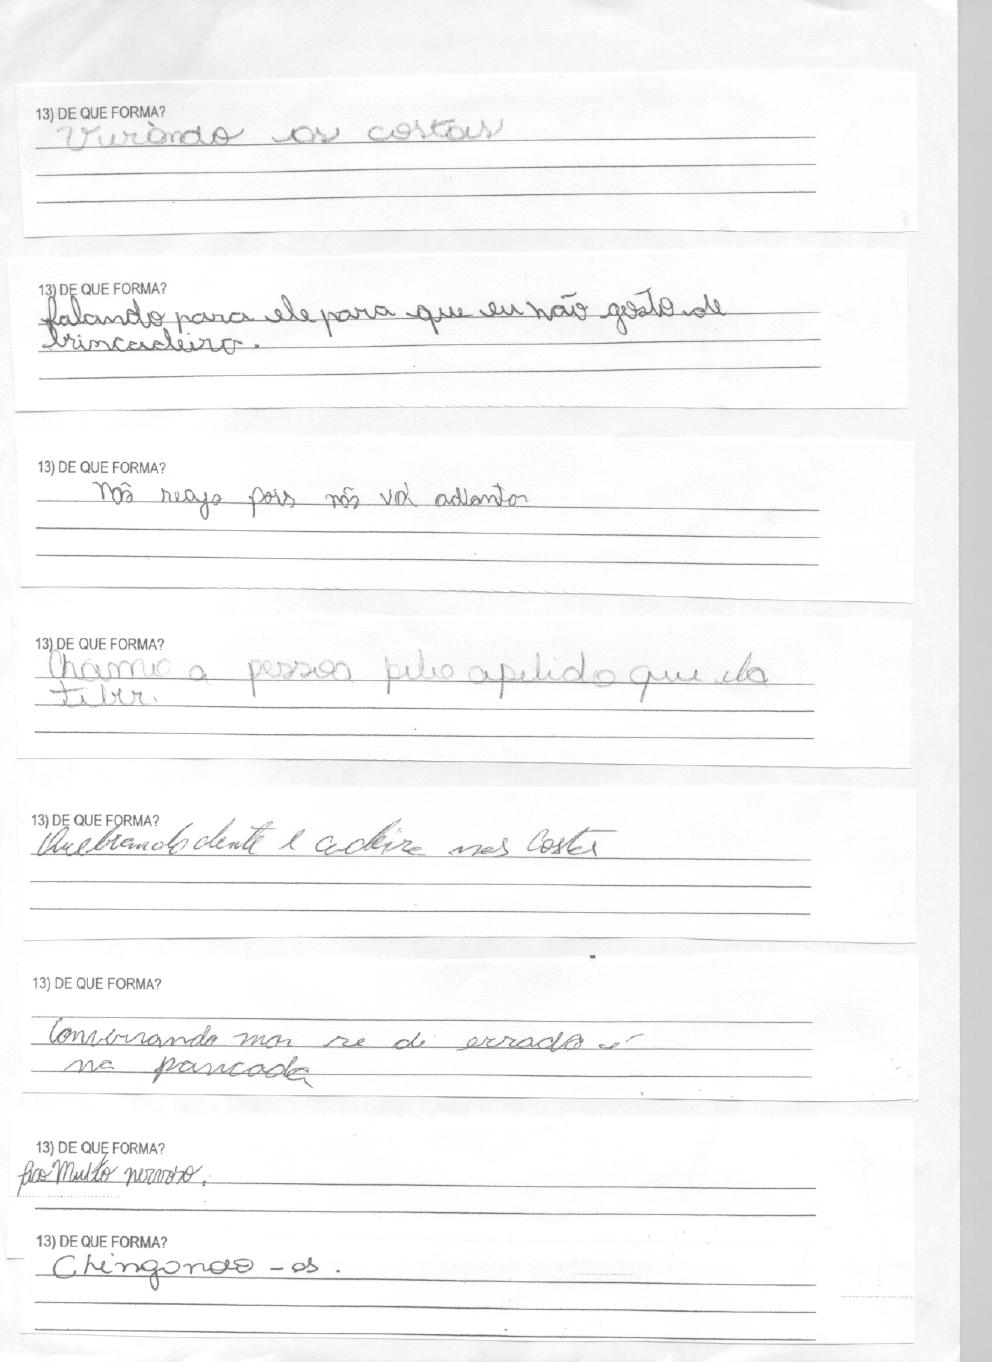 13) DE QUE FORMA?
Virando as costas
13) DE QUE FORMA?
falando para ele para que eu não gosto de
brincadeira.
13) DE QUE FORMA?
Não reajo pois não vai adiantar
13) DE QUE FORMA?
Chamo a pessoa pelo apelido que ela
tiver.
13) DE QUE FORMA?
Quebrando dente e cadeira nas costas
13) DE QUE FORMA?
Conversando mas se di errado é
na pancada
13) DE QUE FORMA?
fico Muito nervoso.
13) DE QUE FORMA?
Chingando-os.